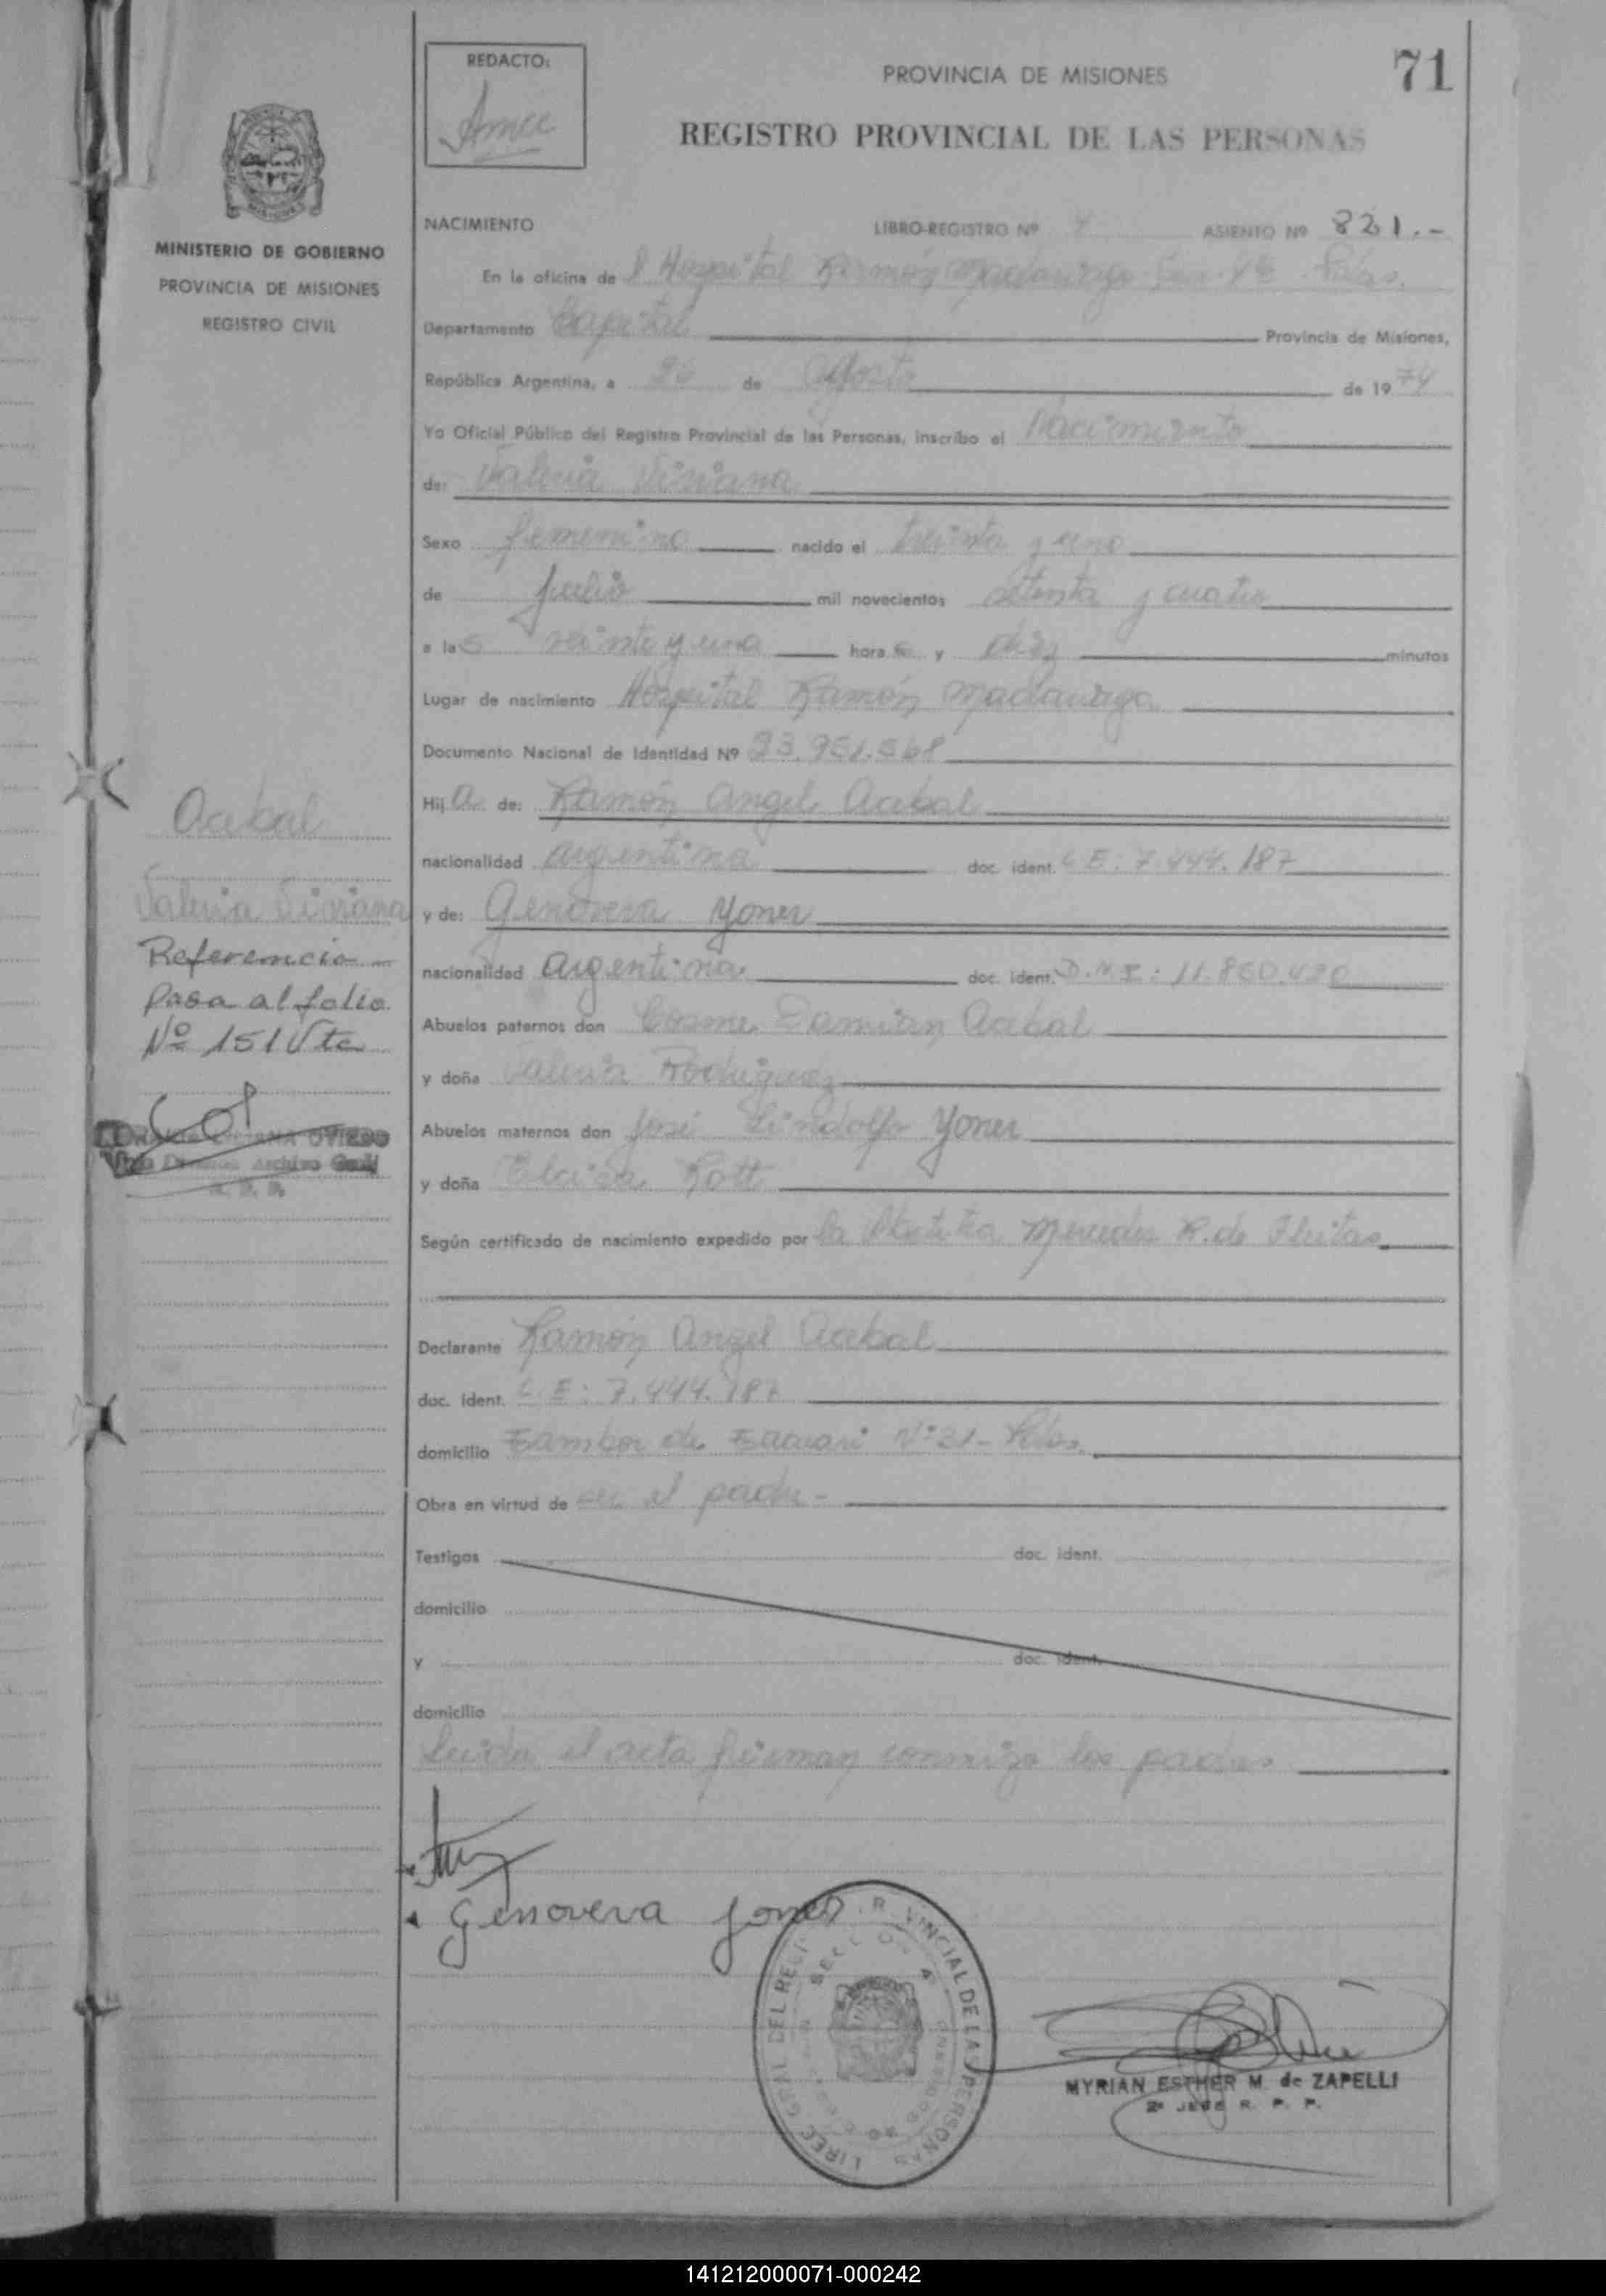 71
REDACTO:
PROVINCIA DE MISIONES
REGISTRO PROVINCIAL DE LAS PERSONAS
MINISTERIO DE GOBIERNO
PROVINCIA DE MISIONES
REGISTRO CIVIL
NACIMIENTO LIBRO-REGISTRO Nº ASIENTO Nº 821.-
En la oficina de l Hospital Ramón Madariaga
Departamento Capital Provincia de Misiones,
República Argentina, a 26 de Agosto de 1974
Yo Oficial Público del Registro Provincial de las Personas, inscribo el Nacimiento
de: Valeria Viviana
Sexo femenino nacido el treinta y uno
de julio mil novecientos setenta y cuatro
a las veinte y una horas y diez minutos
Lugar de nacimiento Hospital Ramón Madariaga
Documento Nacional de Identidad Nº 23.951.568
Hija de: Ramón Angel Acebal
nacionalidad argentina doc. ident. L.E: 7.444.187
y de: Genoveva Yoner
nacionalidad argentina doc. ident. D.N.I: 11.860.430
Abuelos paternos don Cosme Damian Acebal
y doña Valeria Rodriguez
Abuelos maternos don José Lindolfo Yoner
y doña Elcira Rott
Según certificado de nacimiento expedido por la Obstetra Mercedes R. de Fleitas
Declarante Ramón Angel Acebal
doc. ident. L.E: 7.444.187
domicilio Tambor de Tacuari Nº 31- Pdas.
Obra en virtud de ser el padre-
Testigos doc. ident.
domicilio
y doc. ident.
domicilio
Leida el acta firman conmigo los padres
Acebal
Valeria Viviana
Referencia
Pasa al folio
Nº 151 Vta
OVIEDO
Archivo Gral
Genoveva Yoner
SECCION
MYRIAN ESTHER M. de ZAPELLI
2º JEFE R. P. P.
141212000071-000242